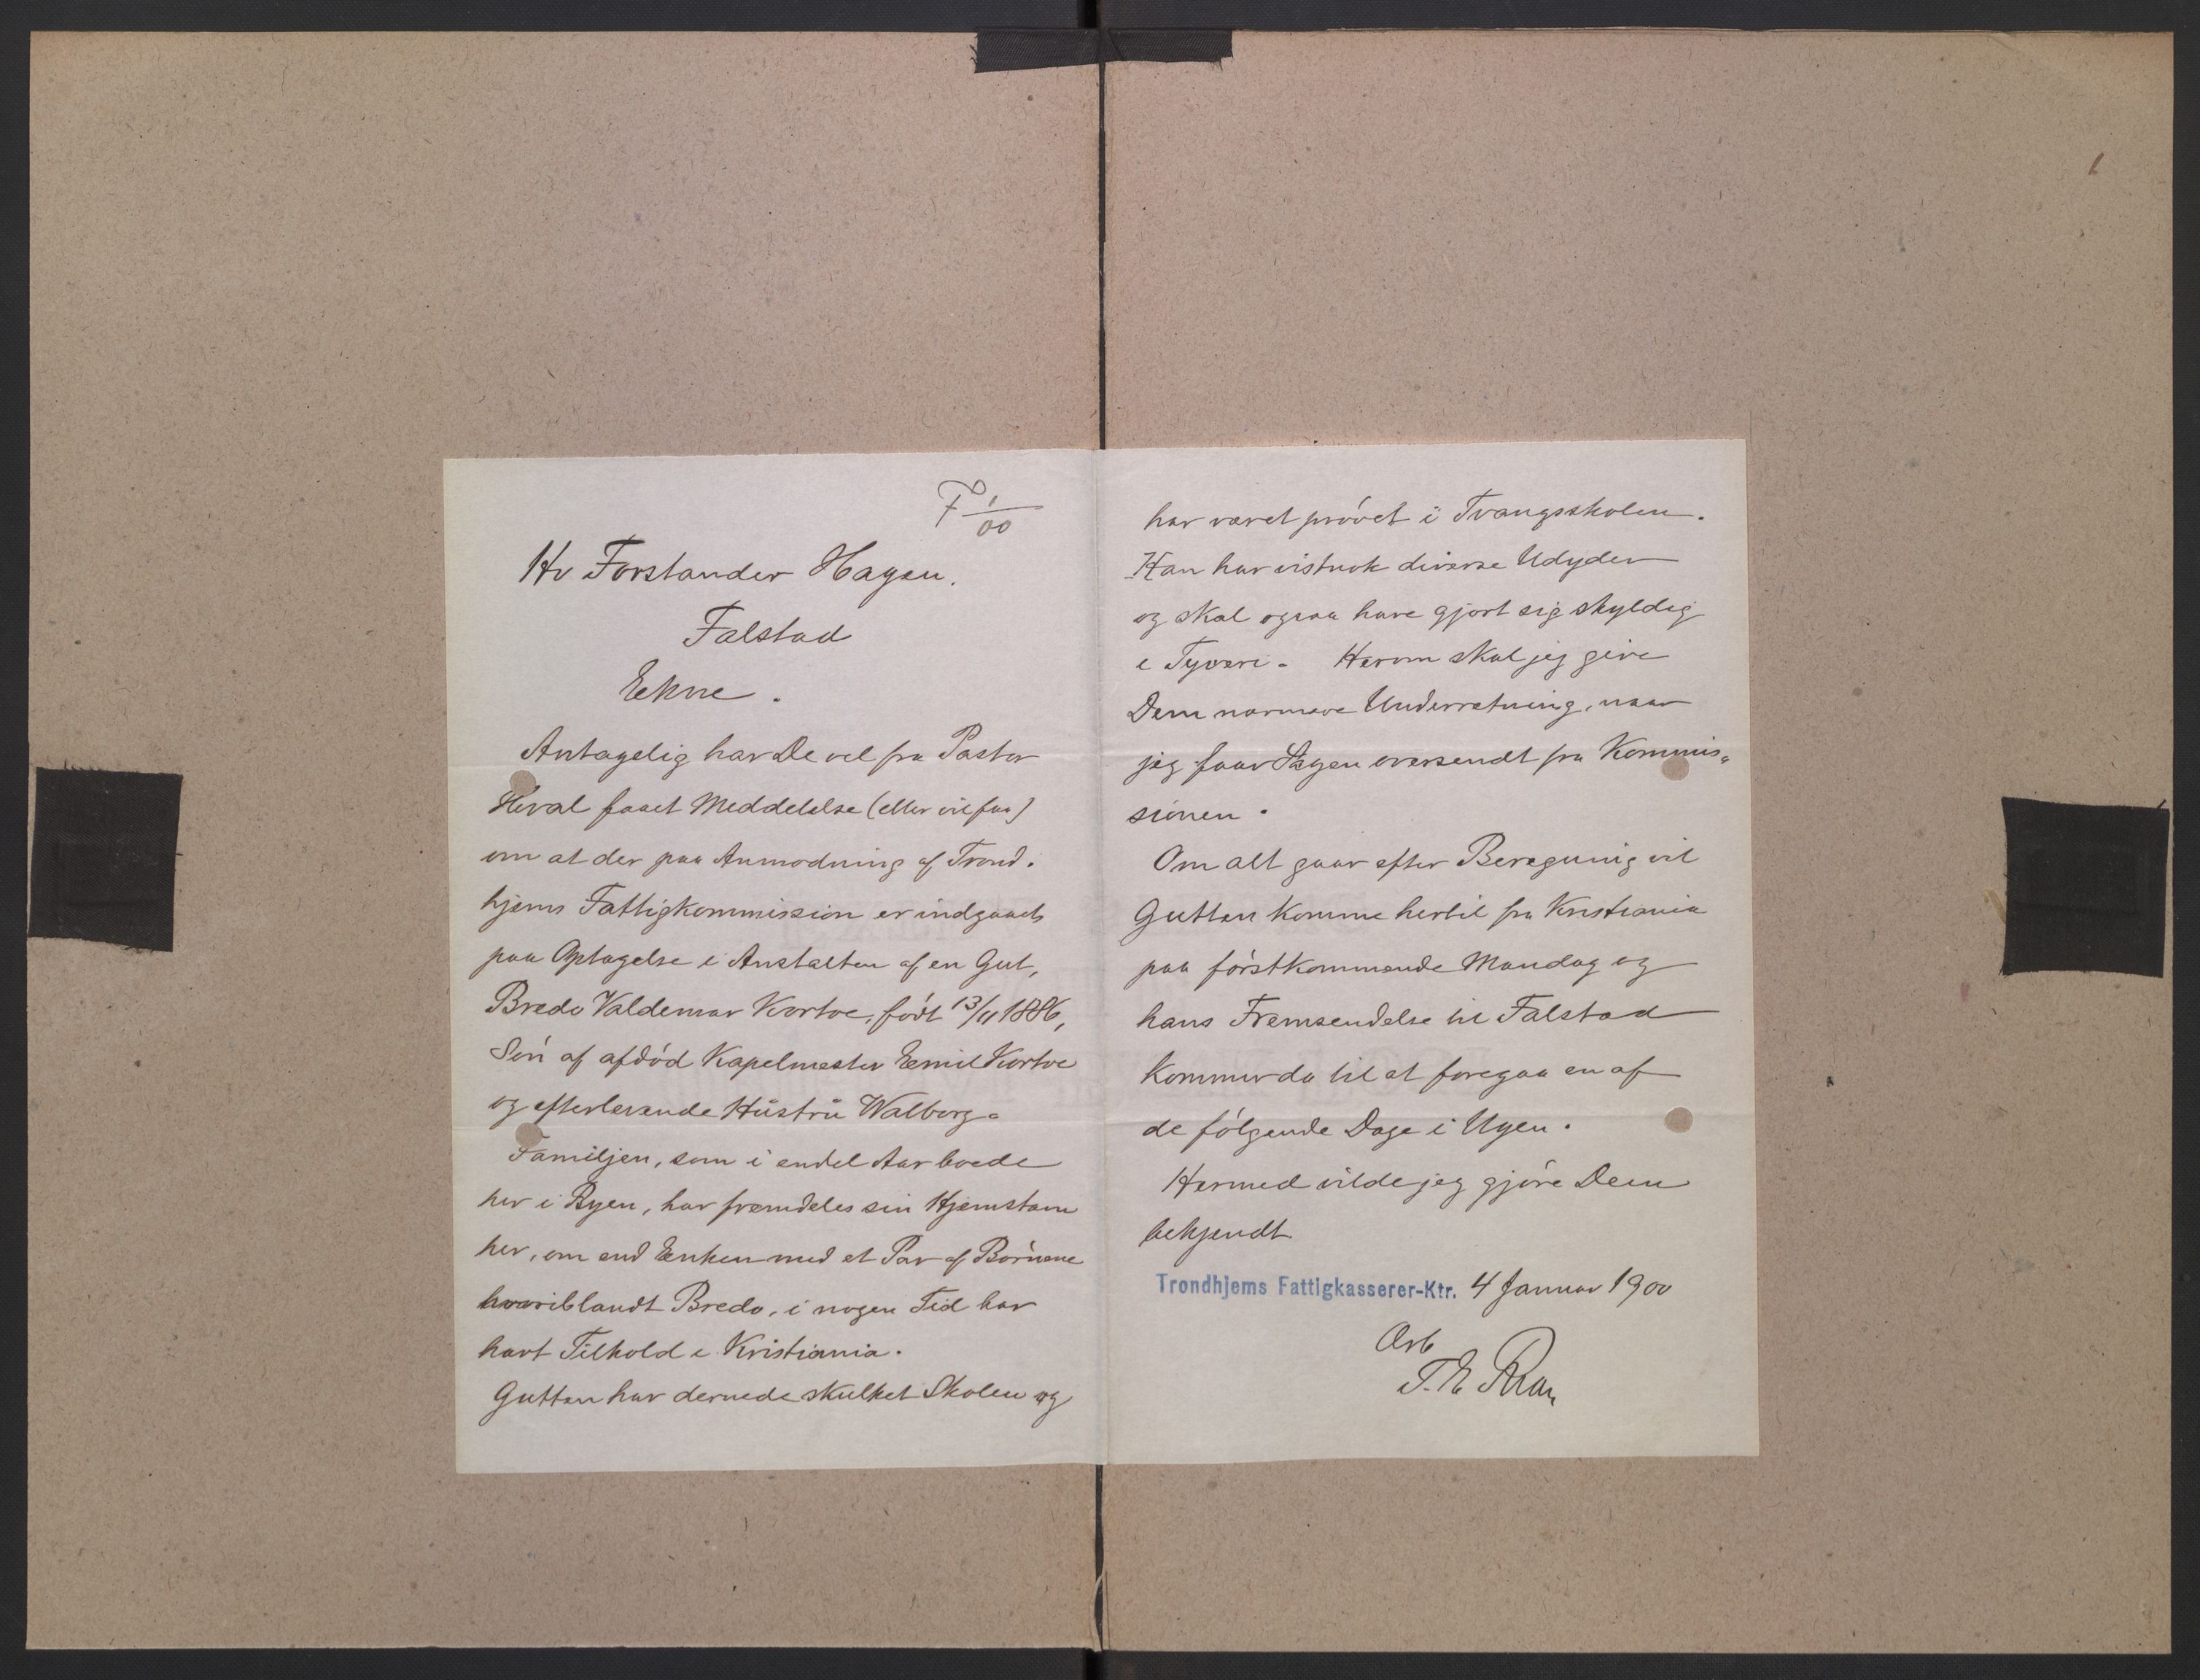 7 1/00
Hr Forstander Hagen.
Falstad
Ekne.
Antagelig har De vel fra Pastor
faaet Meddelelse (eller vil faa)
om at der paa Anmodning af Trond-
hjems Fattigkommission er indgaaet
paa Optagelse i Anstalten af en Gut,
Bredo Valdemar Kortoe, født 13/11 1886,
Søn af afdød Kapelmester Emil Kortoe
og efterlevende Hustru Walborg.
Familjen, som i endel Aar boede
her i Byen, har fremdeles sin Hjemstavn
her, om end Enken med et Par af Børnene
hvoriblandt Bredo, i nogen Tid har
havt Tilhold i Kristiania.
Gutten har dernede skulket Skolen og
har været prøvet i Tvangsskolen.
Han har vistnok diverse Udyder
og skal ogsaa have gjort sig skyldig
i Tyveri. Herom skal jeg give
Dem nærmere Underretning, naar
jeg faar Sagen oversendt fra Kommis-
sionen.
Om alt gaar efter Beregning vil
Gutten komme hertil fra Kristiania
paa førstkommende Mandag og
hans Fremsendelse til Falstad
kommer da til at foregaa en af
de følgende Dage i Ugen.
Hermed vilde jeg gjøre Dem
bekjendt
Trondhjems Fattigkasserer-Ktr. 4 Januar 1900
Ærb